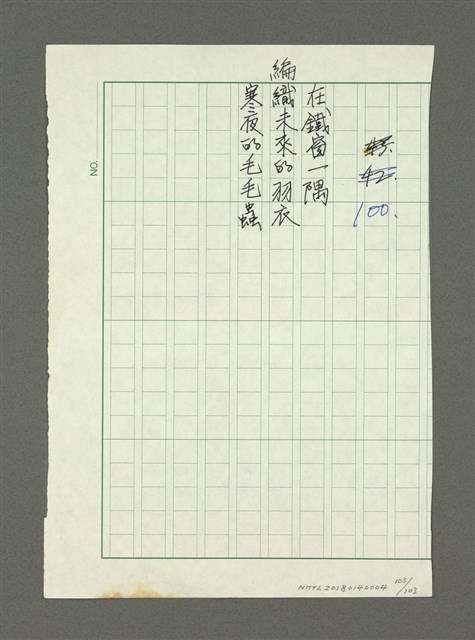 100.
在鐵窗一隅
編織未來的羽衣
寒夜的毛毛蟲
NO.
NMTL20180140004
103/103